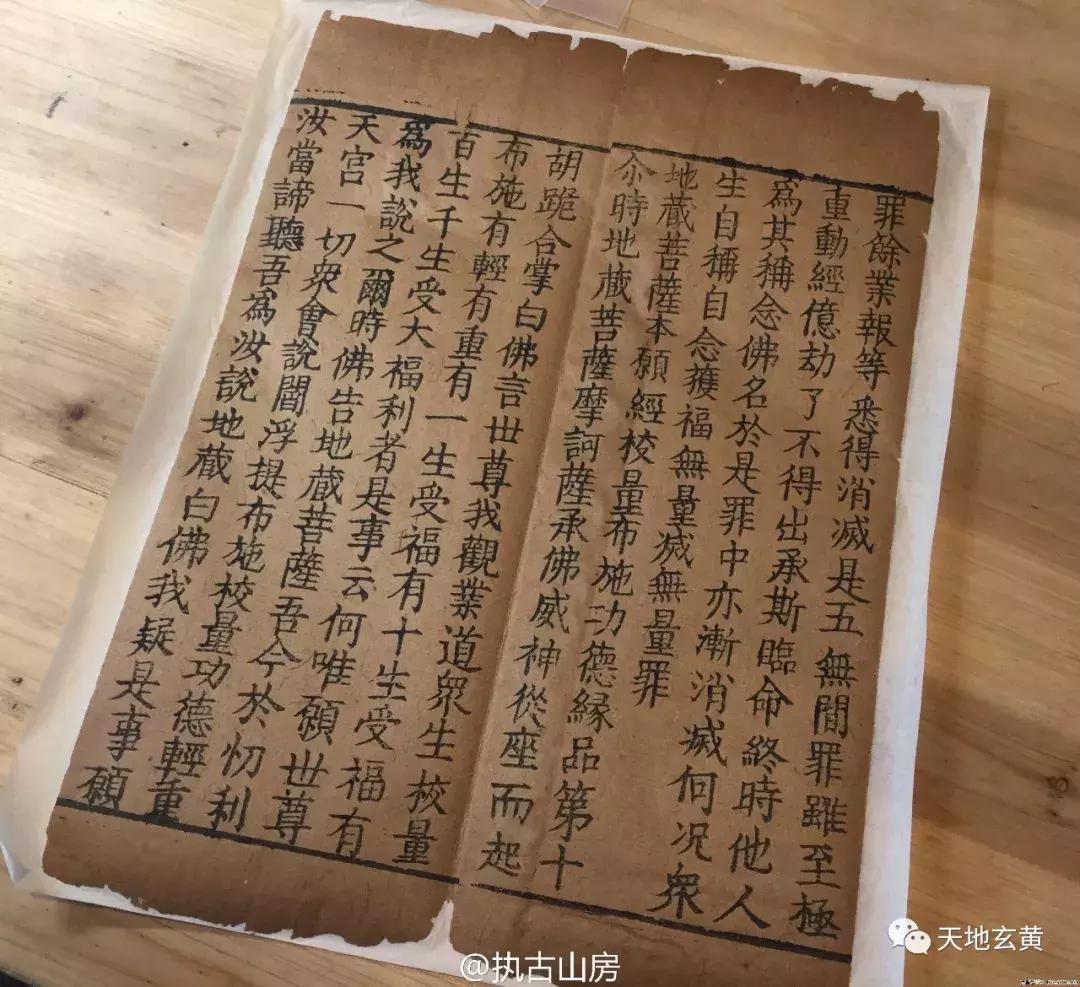 罪餘業報等悉得消滅是五無間罪雖至極
重動經億劫了不得出承斯臨命終時他人
為其稱念佛名於是罪中亦漸消滅何况衆
生自稱自念獲福無量滅無量罪
地藏菩薩本願經校量布施功德緣品第十
尒時地藏菩薩摩訶薩承佛威神從座而起
胡跪合掌白佛言世尊我觀業道衆生校量
布施有輕有重有一生受福有十生受福有
百生千生受大福利者是事云何唯願世尊
爲我說之爾時佛告地藏菩薩吾今於忉利
天宮一切衆會說閻浮提布施校量功德輕重
汝當諦聽吾為汝說地藏白佛我疑是事願
@执古山房
天地玄黄